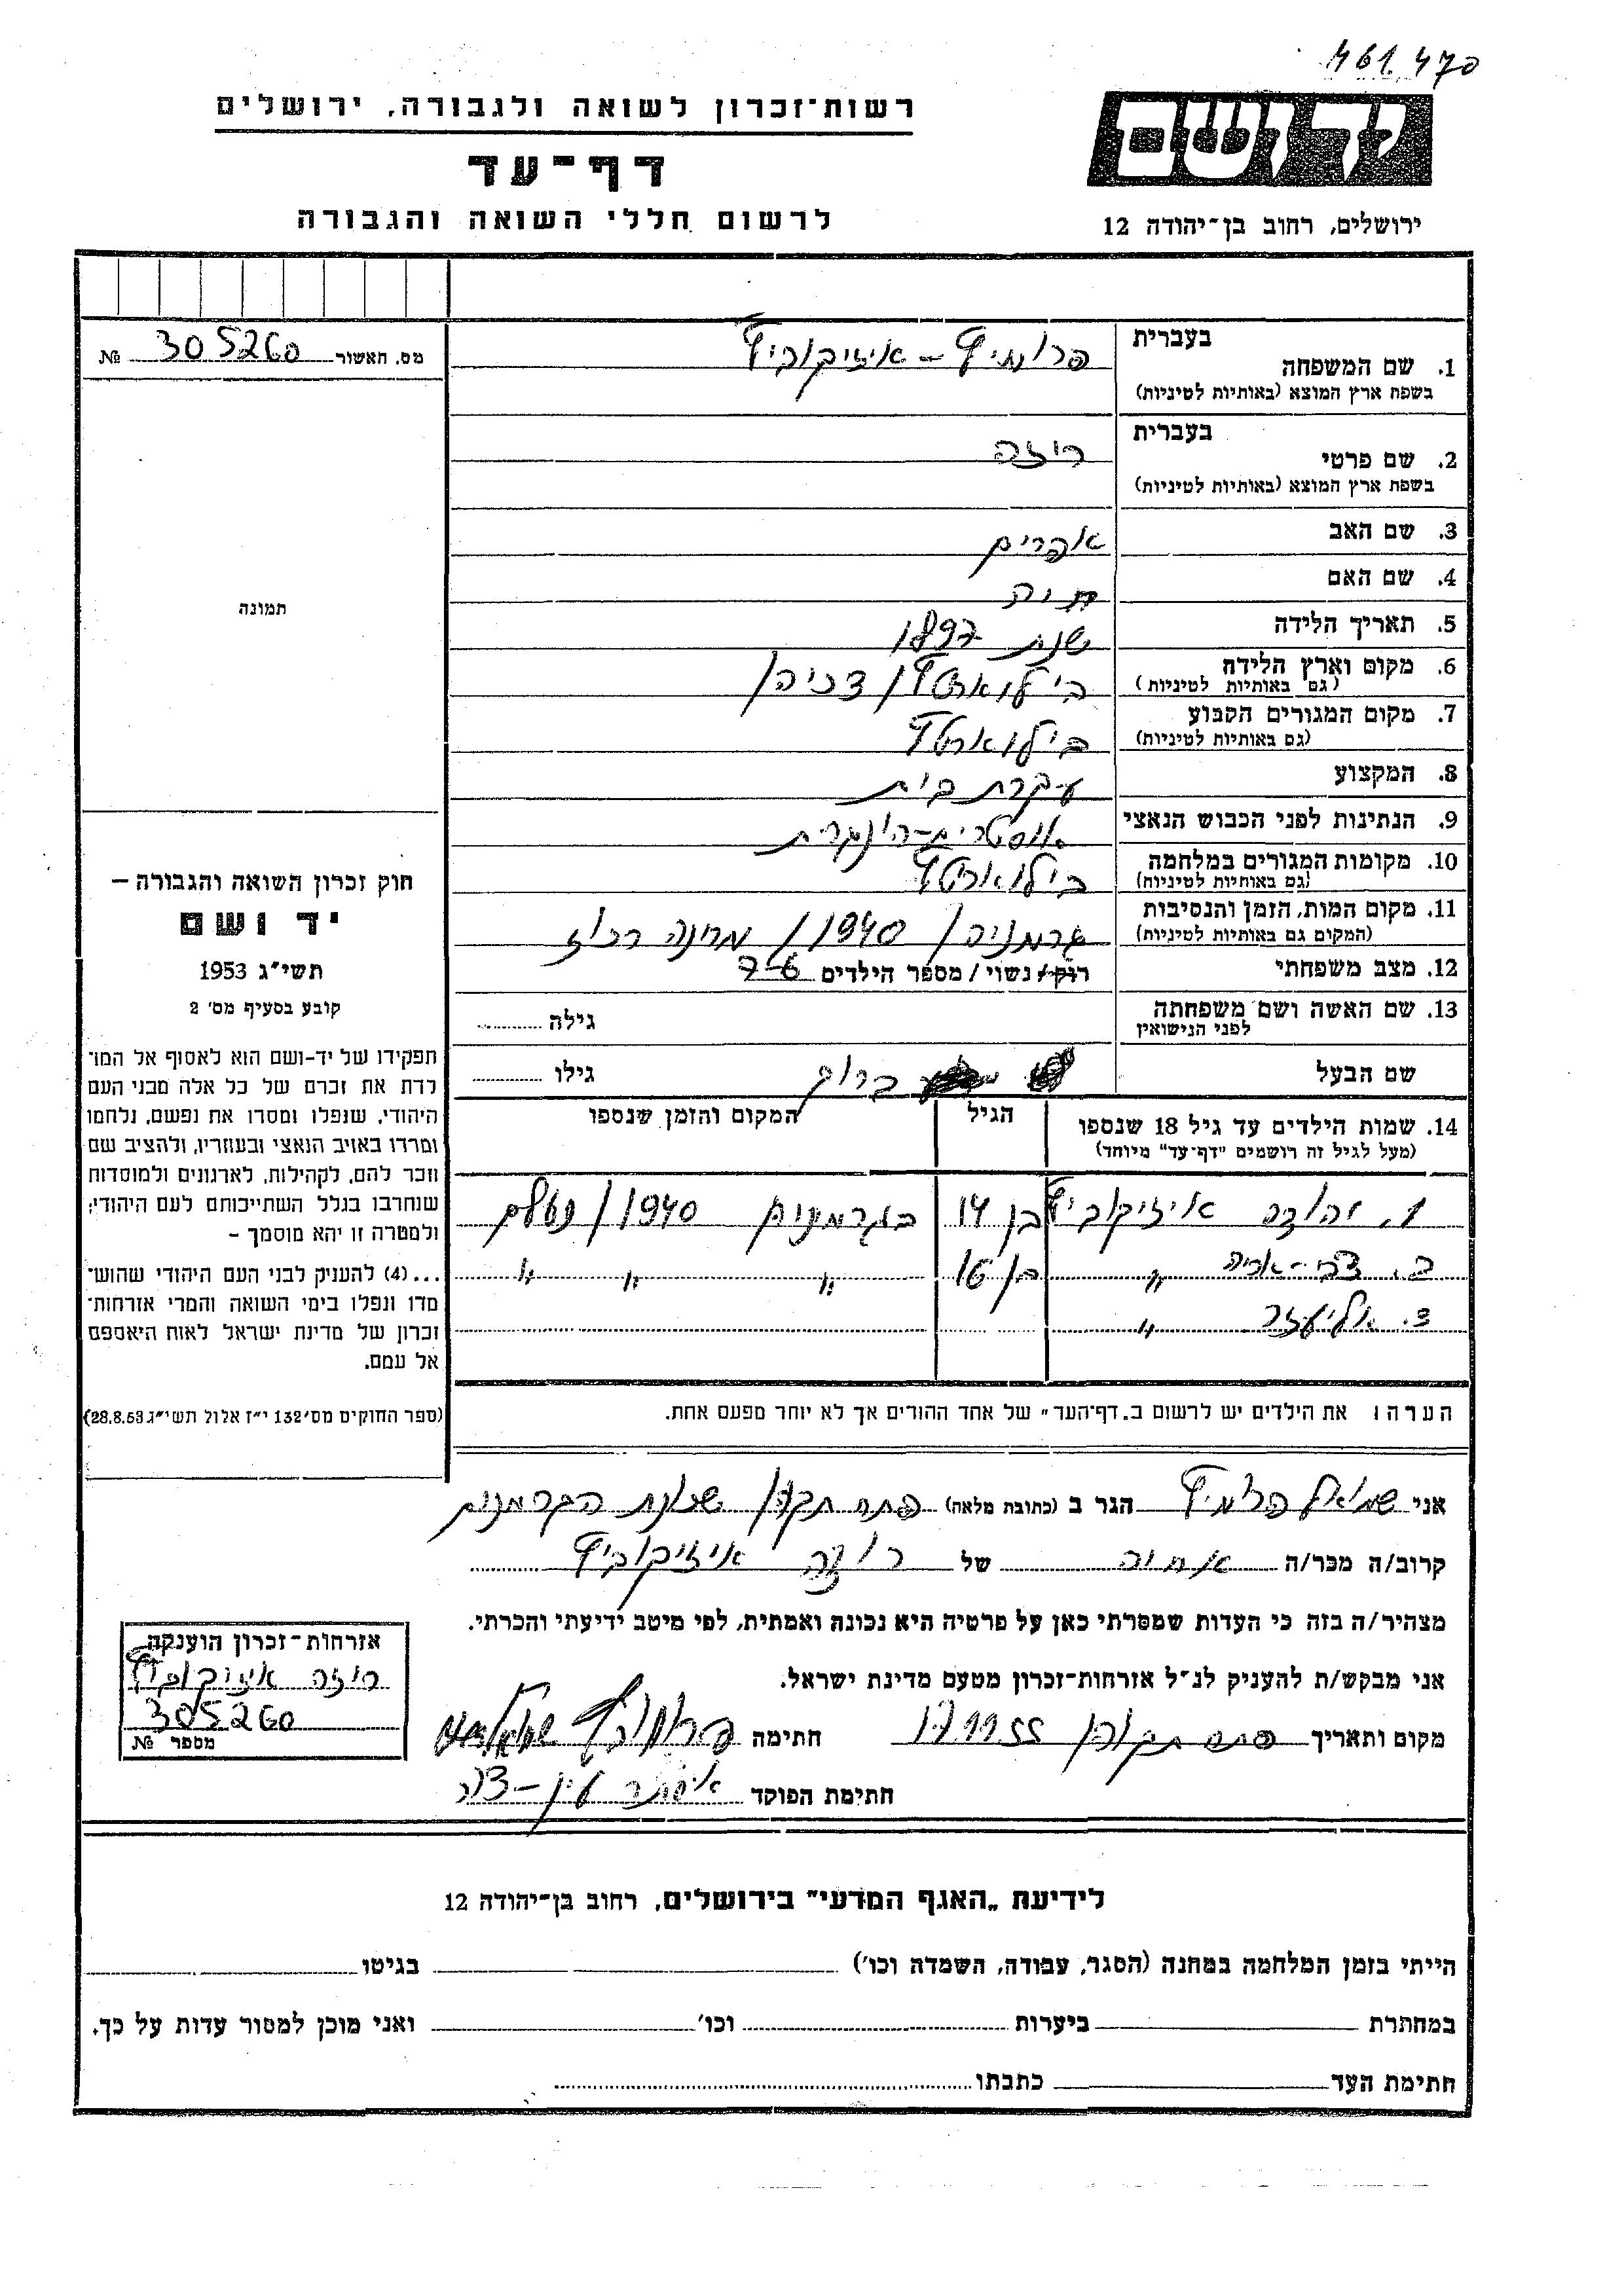 461.470
רשות־זכרון לשואה ולגבורה, ירושלים
יד ושם
דף־עד
לרשום חללי השואה והגבורה
ירושלים, רחוב בן־יהודה 12
מס. האשור 305260 №
בעברית
1. שם המשפחה
בשפת ארץ המוצא (באותיות לטיניות)
איזיקוביץ
בעברית
2. שם פרטי רוזה
בשפת ארץ המוצא (באותיות לטיניות)
3. שם האב אפרים
4. שם האם חיה
5. תאריך הלידה שנת 1897
6. מקום וארץ הלידה
(גם באותיות לטיניות)
7. מקום המגורים הקבוע
(גם באותיות לטיניות)
8. המקצוע עקרת בית
9. הנתינות לפני הכבוש הנאצי אוסטרית-הונגרית
10. מקומות המגורים במלחמה
(גם באותיות לטיניות)
11. מקום המות, הזמן והנסיבות גרמניה / 1940 / מחנה רכוז
(המקום גם באותיות לטיניות)
12. מצב משפחתי רוק/נשוי/מספר הילדים 7-6
13. שם האשה ושם משפחתה גילה
לפני הנישואין
שם הבעל ברוך גילו
14. שמות הילדים עד גיל 18 שנספו הגיל המקום והזמן שנספו
(מעל לגיל זה רושמים "דף־עד" מיוחד)
1. יהודה איזיקוביץ בן 14 בגרמניה 1940/ נעלם
ב. צבי-אריה " בן 16 " " "
ג. אליעזר "
הערה: את הילדים יש לרשום ב„דף־העד" של אחד ההורים אך לא יוחד מפעם אחת.
תמונה
חוק זכרון השואה והגבורה –
יד ושם
תשי"ג 1953
קובע בסעיף מס' 2
תפקידו של יד־ושם הוא לאסוף אל המו־
לדת את זכרם של כל אלה מבני העם
היהודי, שנפלו ומסרו את נפשם, נלחמו
ומרדו באויב הנאצי ובעוזריו, ולהציב שם
וזכר להם, לקהילות, לארגונים ולמוסדות
שנחרבו בגלל השתייכותם לעם היהודי;
ולמטרה זו יהא מוסמך –
...(4) להעניק לבני העם היהודי שהוש־
מדו ונפלו בימי השואה והמרי אזרחות־
זכרון של מדינת ישראל לאות היאספם
אל עמם.
(ספר החוקים מס' 132 י"ז אלול תשי"ג 28.8.53)
אני שמואל הגר ב (כתובת מלאה) פתח תקוה/ שכונת
קרוב/ה מכר/ה אחיה של רוזה איזיקוביץ
מצהיר/ה בזה כי העדות שמסרתי כאן על פרטיה היא נכונה ואמתית, לפי מיטב ידיעתי והכרתי.
אני מבקש/ת להעניק לנ"ל אזרחות־זכרון מטעם מדינת ישראל.
מקום ותאריך פתח תקוה 17.11.55 חתימה
חתימת הפוקד
אזרחות־זכרון הוענקה
רוזה איזיקוביץ
305260
מספר №
לידיעת „האגף המדעי" בירושלים, רחוב בן־יהודה 12
הייתי בזמן המלחמה במחנה (הסגר, עבודה, השמדה וכו') בגיטו
במחתרת ביערות וכו' ואני מוכן למסור עדות על כך.
חתימת העד כתבתו